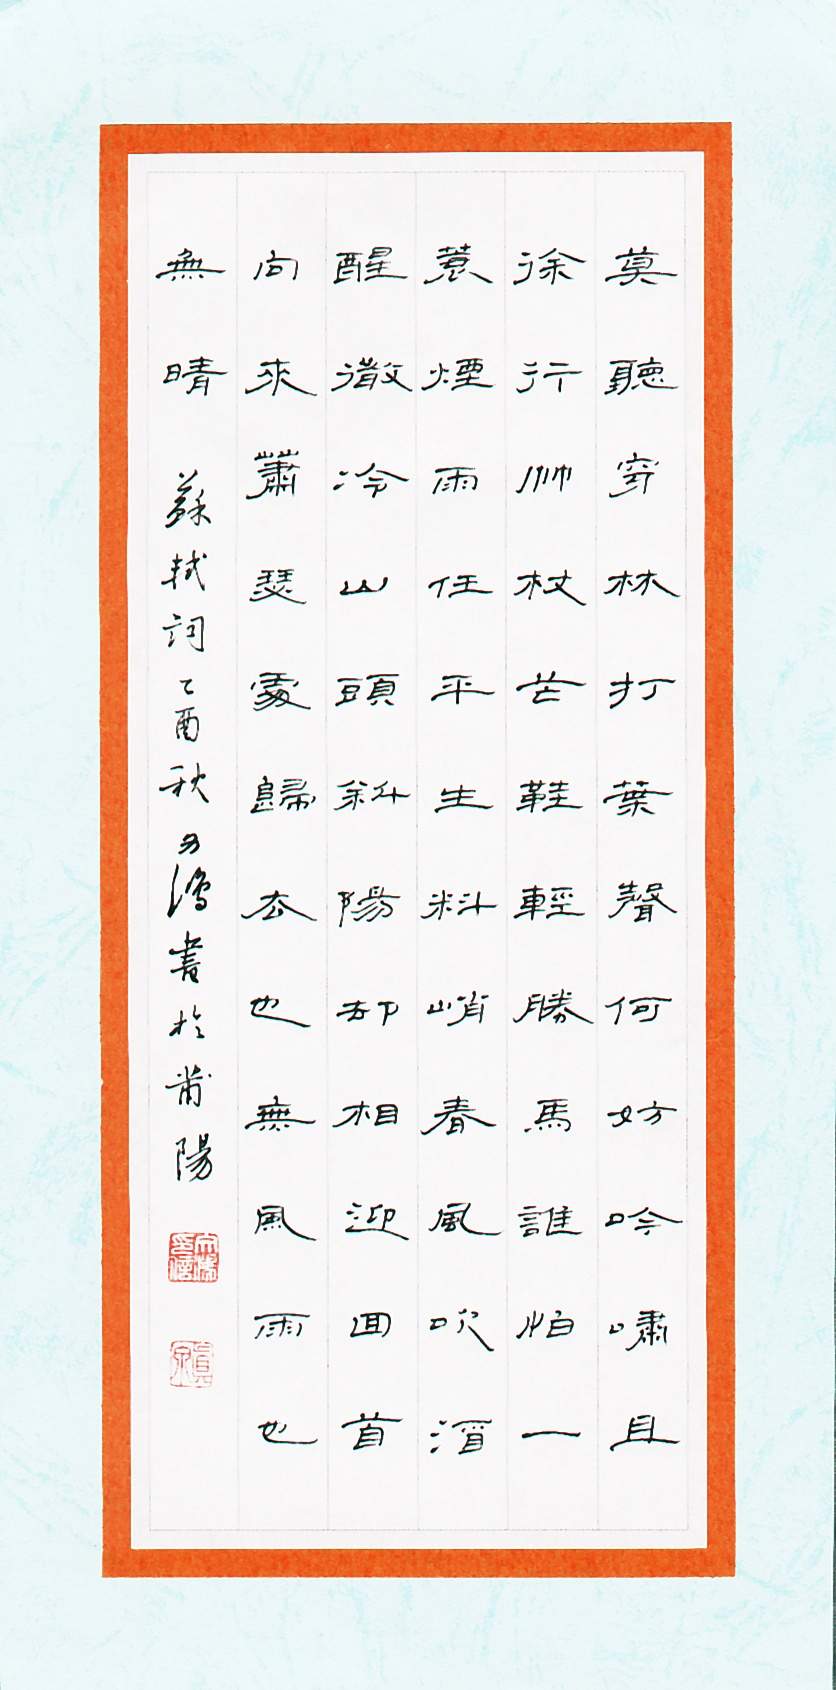 莫聽穿林打葉聲何妨吟嘯且
徐行竹杖芒鞋輕勝馬誰怕一
蓑煙雨任平生料峭春風吹酒
醒微冷山頭斜陽却相迎回首
向來蕭瑟處歸去也無風雨也
無晴 蘇軾詞乙酉秋鴻書於莆陽